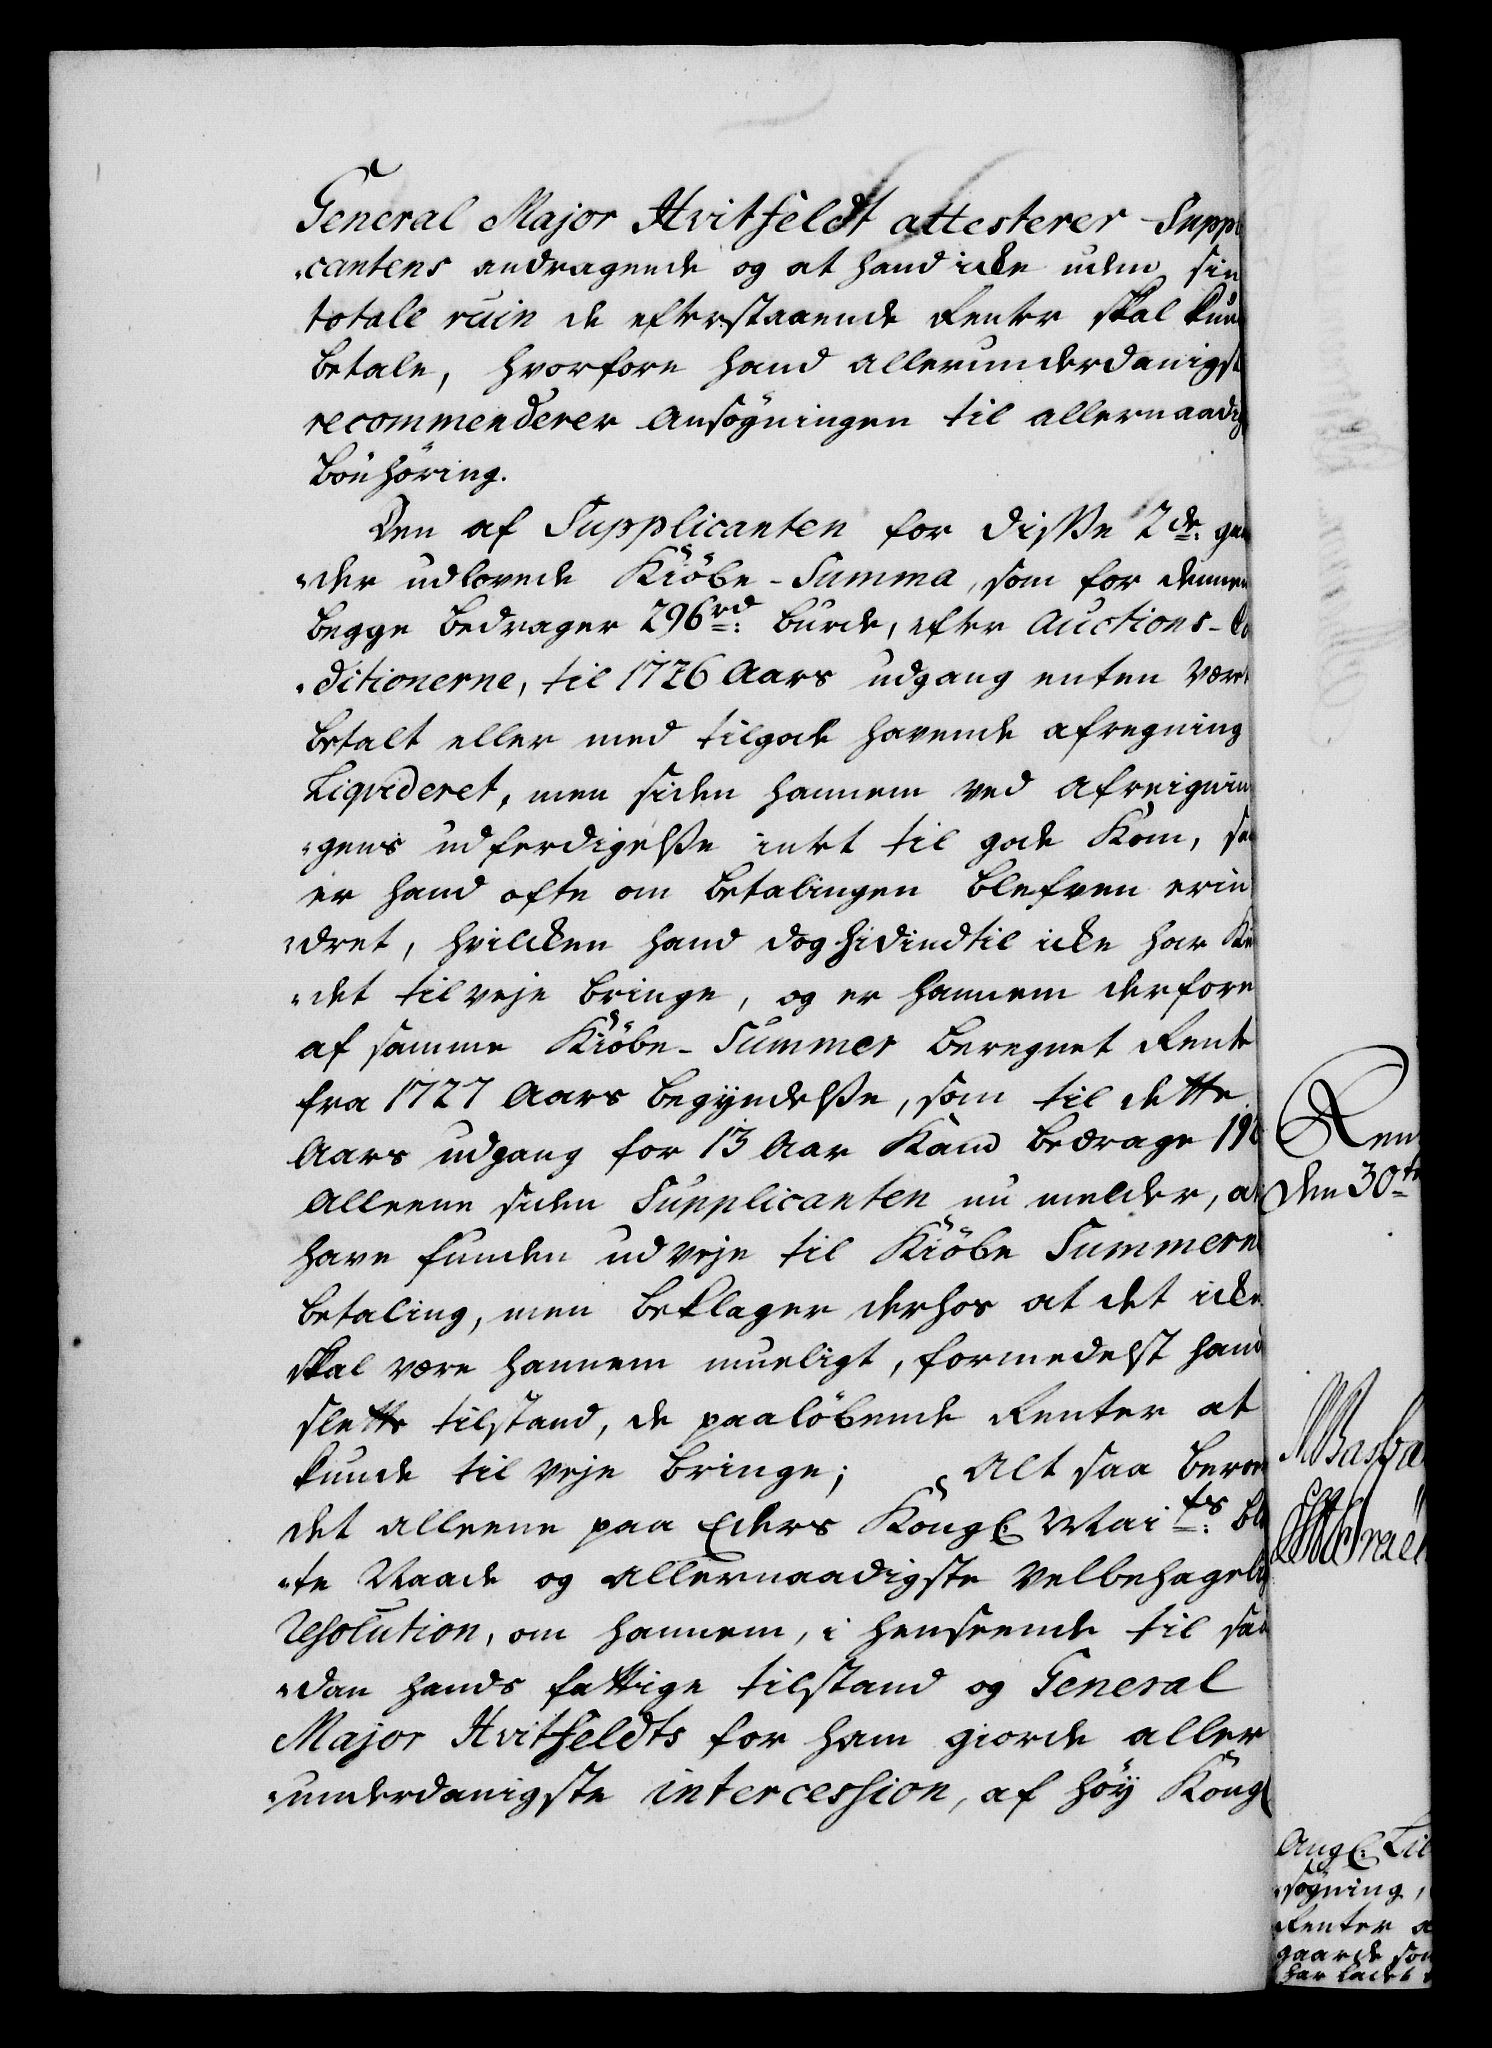 General Major Hvitfeldt attesterer Suppli
cantens andragende og at hand icke uden sin
totale ruin de efterstaaende Renter skal kun
betale, hvorfore hand allerunderdanigst
recommenderer Ansøgningen til allernaadigst
bönhöring.
Den af Supplicanten for disse 2de: gaar
der udlovede Kiöbe-Summa, som for dennem
begge bedrager 296 rd: burde, efter Auctions-Co
ditionerne, til 1726 Aars udgang enten været
betalt eller med tilgode havende afregning
Liqvideret, men siden hannem ved Afreignin
gens udferdigelsse intet til gode Kom, saa
er hand ofte om betalingen blefven erin
dret, hvilcken hand dog hidindtil icke har Ku
det tilveje bringe, og er hannem derfore
af samme Kiöbe-Summer beregnet Rente
fra 1727 Aars begyndelsse, som til dette
Aars udgang for 13 Aar Kand bedrage 19
Alleene siden Supplicanten nu melder, at
have funden udveje til Kiöbe Summerne
betaling, men beklager derhos at det icke
skal være hannem mueligt, formedelst hand
slette tilstand, de paaløbende Renter at
kunde til veje bringe; Alt saa beroer
det alleene paa Eders Kongl. Mai ts: blo
te Naade og allernaadigste velbehagelig
resolution, om hannem, i henseende til saa
dan hands fattige tilstand og General
Major Hvitfeldts for ham giorde aller
underdanigste intercession, af höy Kongl
Ren
den 30te
Angl. Til
søgning,
Renter a
gaarde som
har ladet